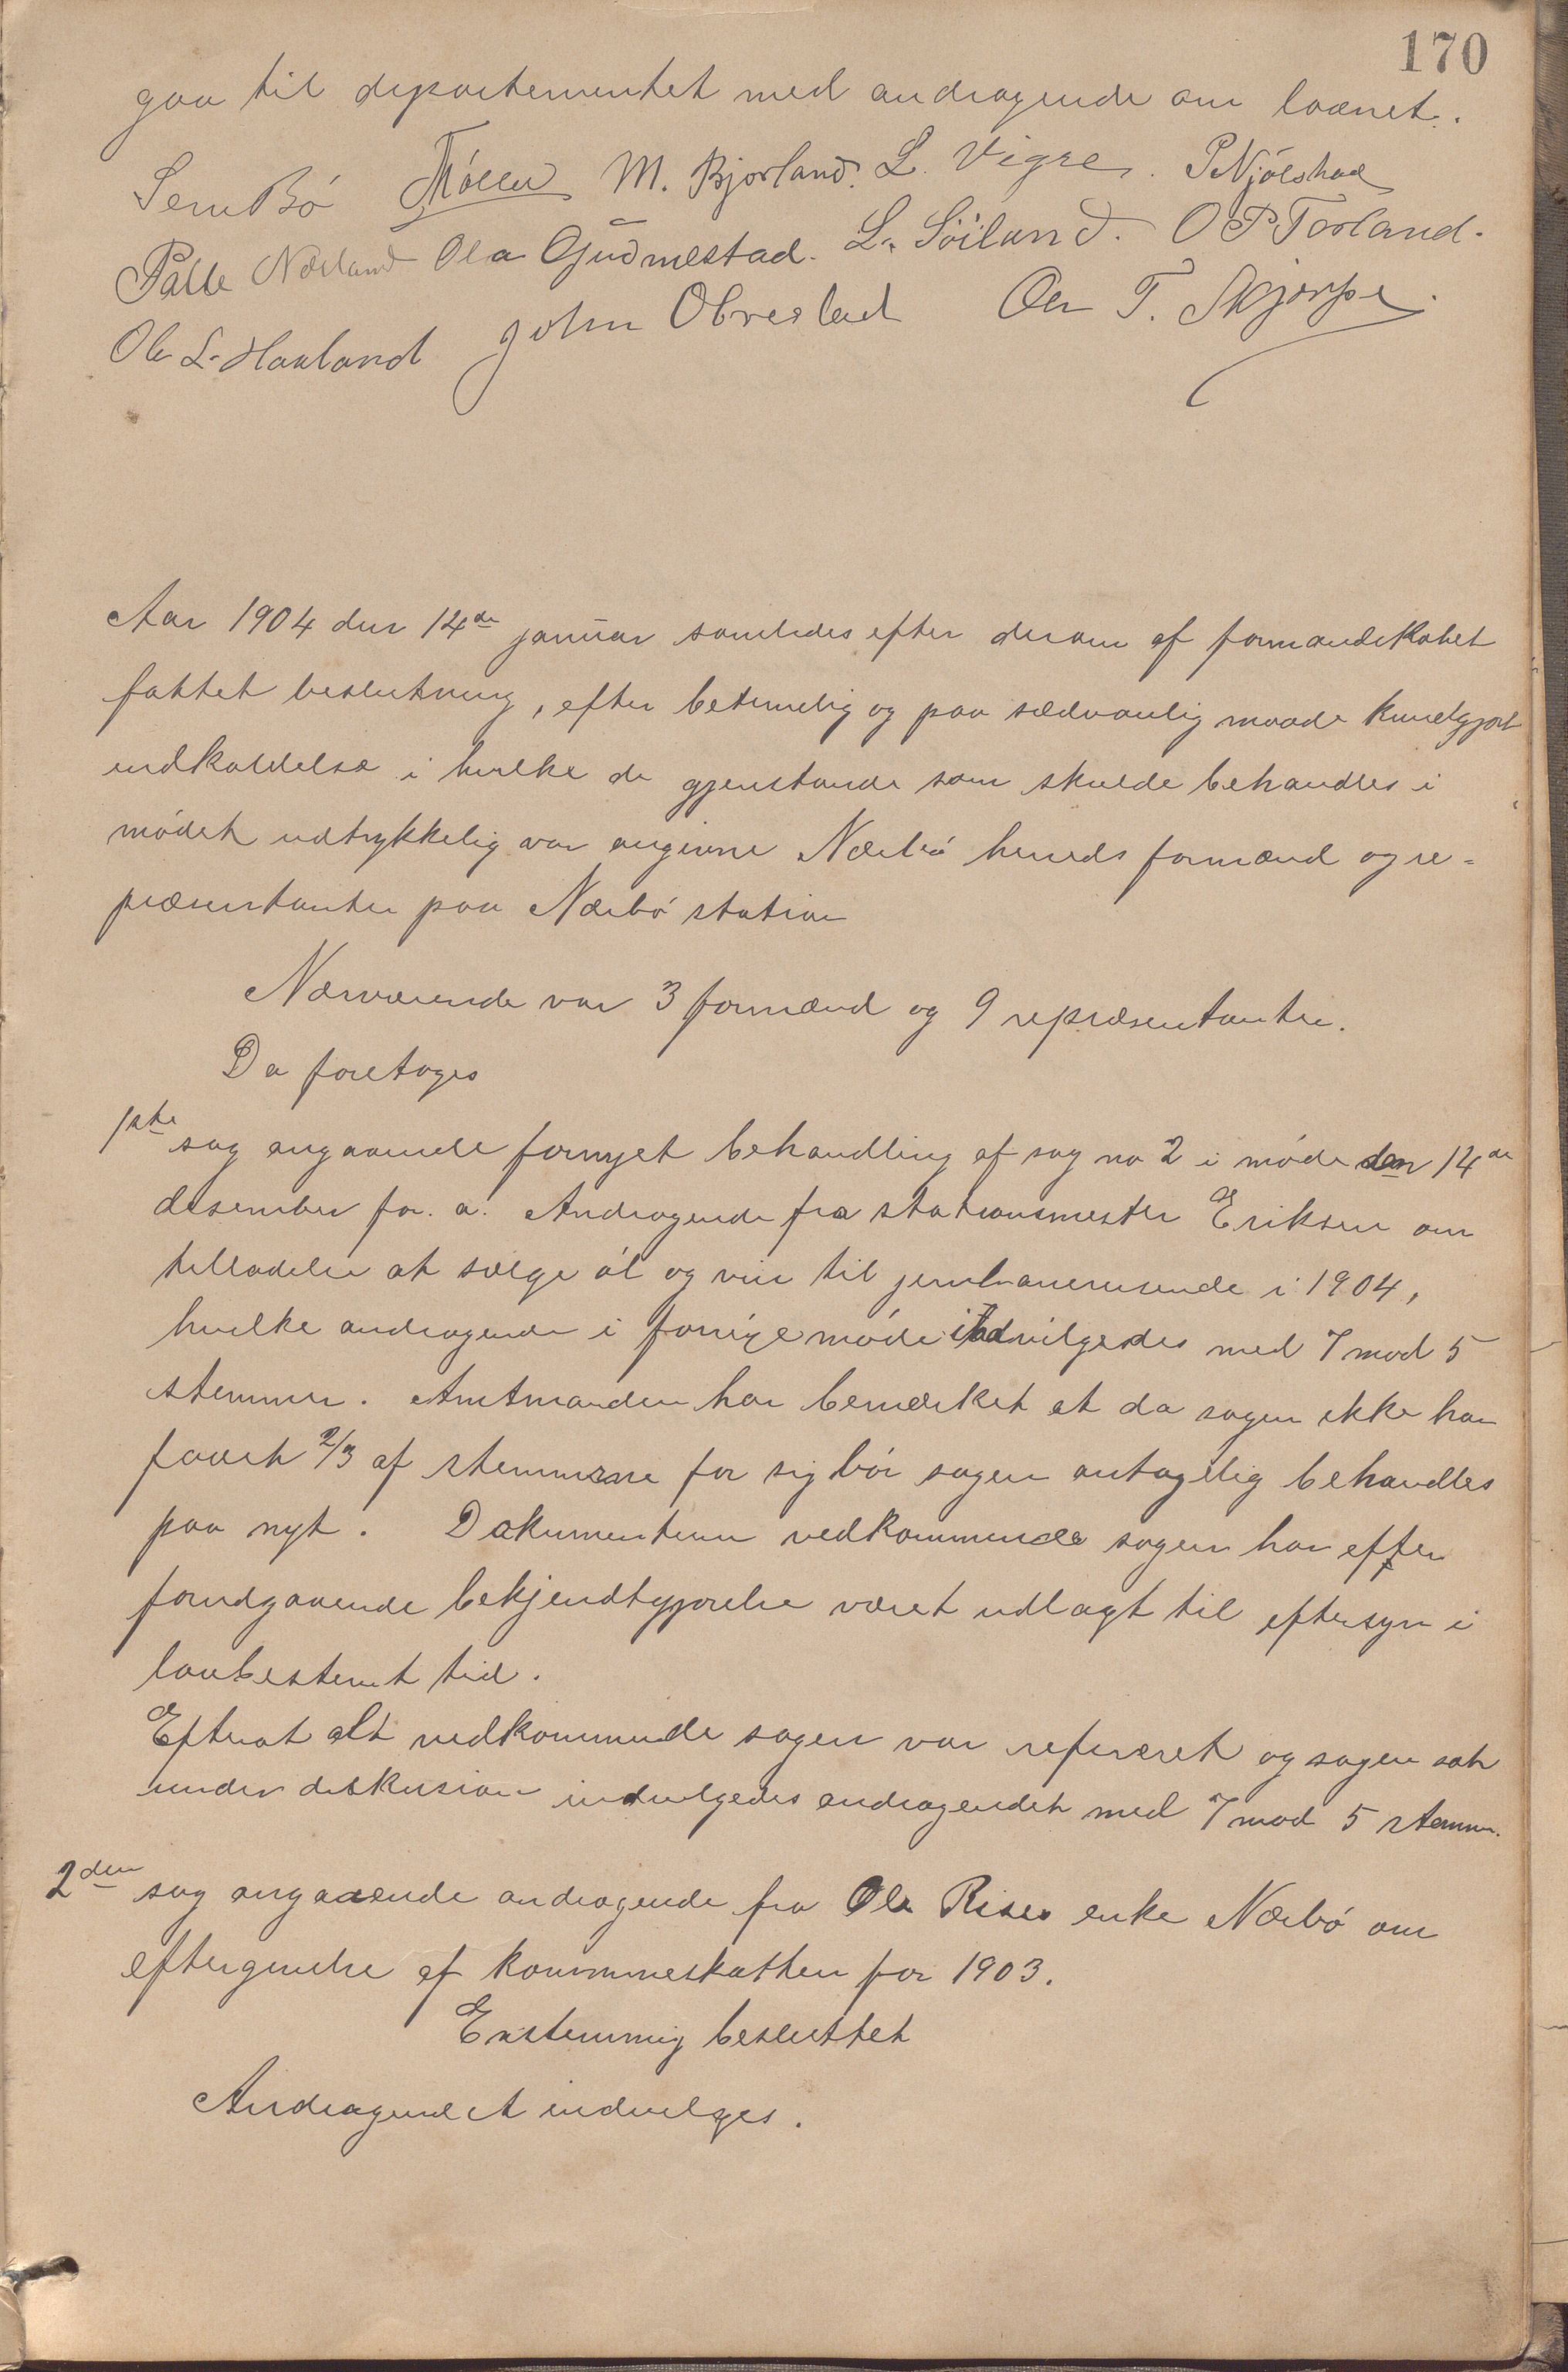 170
gaa til departementet med andragende om laanet.
Sem Bö Möller M. Bjorland. L. Vigre. P Njölstad
Palle Nærland Ola Gudmestad. L. Söiland. O P Torland.
Ole L. Haaland John Obrestad Ole T. Skjerpe.
Aar 1904 den 14de januar samledes efter derom af formandskabet
fattet beslutning, efter betimelig og paa sædvanlig maade kundgjort
indkaldelse i hvilke de gjenstande som skulde behandles i
mödet udtrykkelig var angivne Nærbö herreds formænd og re-
præsentanter paa Nærbö station
Nærværende var 3 formænd og 9 repræsentanter.
Da foretages
1ste sag angaaende fornyet behandling af sag no 2 i möde den 14de
desember for. a. Andragende fra stationsmester Eriksen om
tilladelse at sælge öl og vin til jernbanereisende i 1904,
hvilke andragende i forrige möde indvilgedes med 7 mod 5
stemmer. Amtmanden har bemerket at da sagen ikke har
faaet 2/3 af stemmerne for sig bör sagen antagelig behandles
paa nyt. Dokumenterne vedkommende sagen har efter
forudgaaende bekjendtgjörelse været udlagt til eftersyn i
lovbestemt tid.
Efterat alt vedkommende sagen var refereret og sagen sat
under diskusion indvilgedes andragendet med 7 mod 5 stemmer.
2den sag angaaende andragende fra Ole Rises enke Nærbö om
eftergivelse af kommuneskatten for 1903.
Enstemmig besluttet
Andragendet indvilges.